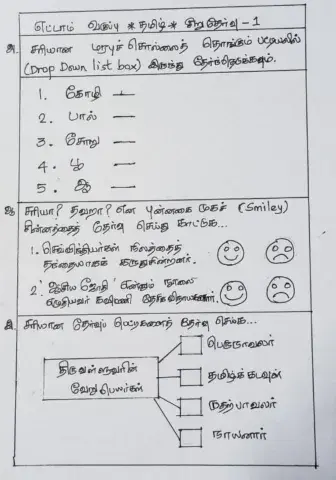 எட்டாம் வகுப்பு * தமிழ் * சிறுதேர்வு - 1
அ. சரியான மரபுச் சொல்லைத் தொங்கும் பட்டியலில்
(Drop Down list box) இருந்து தேர்ந்தெடுக்கவும்.
1. கோழி —
2. பால் —
3. சோறு —
4. பூ —
5. ஆ —
ஆ. சரியா? தவறா? என புன்னகை முகச் (Smiley)
சின்னத்தைத் தேர்வு செய்து காட்டுக...
1. செவ்விந்தியர்கள் நிலத்தைத்
தந்தையாகக் கருதுகின்றனர்.
2. 'ஆசிய ஜோதி' என்னும் நூலை
எழுதியவர் கவிமணி தேசிக விநாயகனார்.
இ. சரியான தேர்வுப் பெட்டியைத் தேர்வு செய்க...
திருவள்ளுவரின்
வேறு பெயர்கள்
பெருநாவலர்
தமிழ்க் கடவுள்
முதற்பாவலர்
நாயனார்